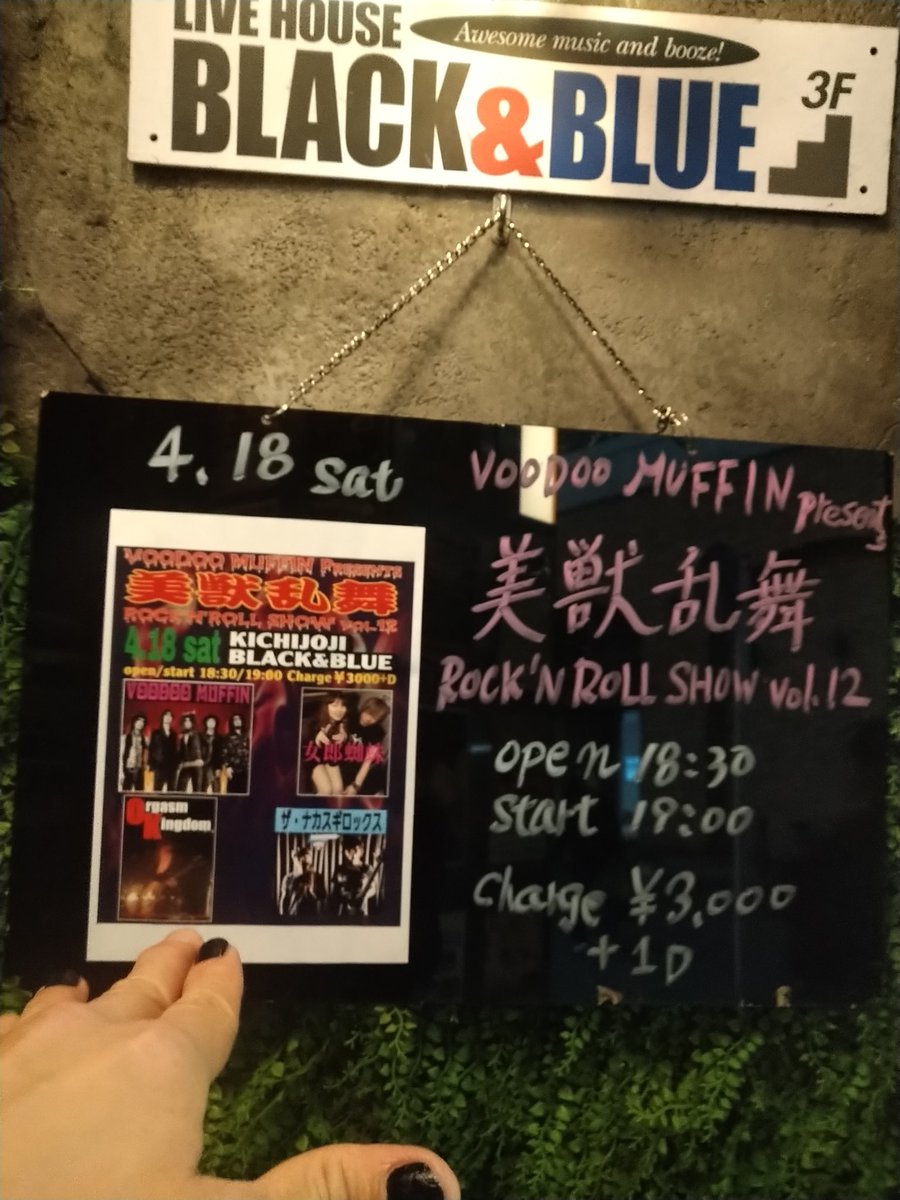 LIVE HOUSE
Awesome music and booze!
BLACK&BLUE
3F
4.18 sat
VOODOO MUFFIN PRESENTS
美獣乱舞
ROCK'N'ROLL SHOW VOL.12
4.18 sat KICHIJOJI
BLACK&BLUE
open/start 18:30/19:00 Charge¥3000+D
VOODOO MUFFIN
女郎蜘蛛
Orgasm
Kingdom
ザ・ナカスギロックス
VOODOO MUFFIN Presents
美獣乱舞
ROCK'N ROLL SHOW vol.12
open 18:30
start 19:00
Charge ¥3,000
+1D